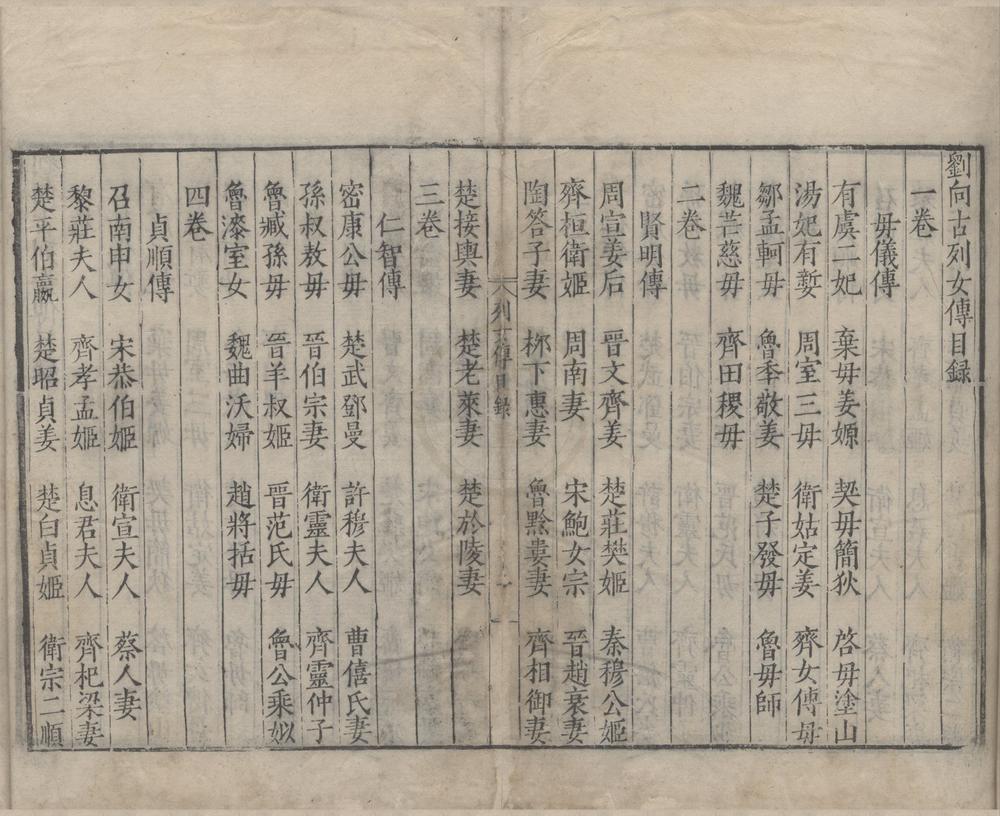 劉向古列女傳目録
一卷
母儀傳
有虞二妃　棄母姜嫄　契母簡狄　啓母塗山
湯妃有㜪　周室三母　衛姑定姜　齊女傅母
鄒孟軻母　魯季敬姜　楚子發母　魯母師
魏芒慈母　齊田稷母
二卷
賢明傳
周宣姜后　晉文齊姜　楚莊樊姬　秦穆公姬
齊桓衛姬　周南妻　宋鮑女宗　晉趙衰妻
陶答子妻　桞下惠妻　魯黔婁妻　齊相御妻
楚接輿妻　楚老萊妻　楚於陵妻
三卷
仁智傳
密康公母　楚武鄧曼　許穆夫人　曹僖氏妻
孫叔敖母　晉伯宗妻　衛靈夫人　齊靈仲子
魯臧孫母　晉羊叔姬　晉范氏母　魯公乘姒
魯漆室女　魏曲沃婦　趙將括母
四卷
貞順傳
召南申女　宋恭伯姬　衛宣夫人　蔡人妻
黎莊夫人　齊孝孟姬　息君夫人　齊杞梁妻
楚平伯嬴　楚昭貞姜　楚白貞姬　衛宗二順
列女傳目錄
一